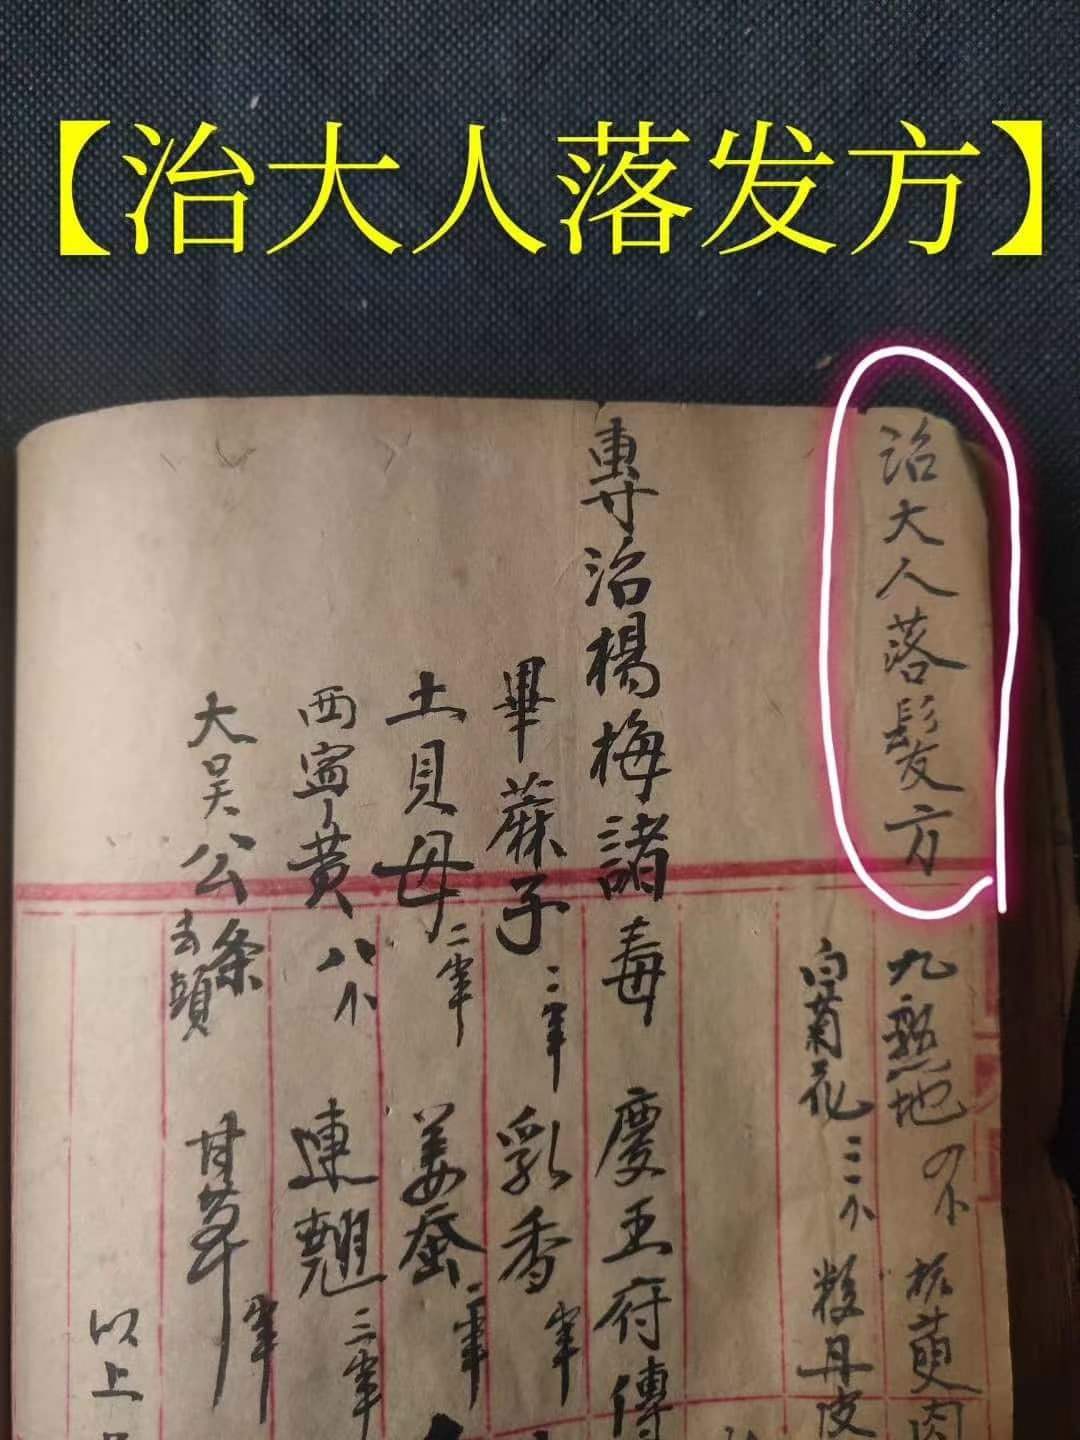 【治大人落发方】
治大人落髮方
九熟地 萸肉
白菊花 三个 粉丹皮
專治楊梅諸毒 慶王府傳
蓽蔴子 二 乳香
土貝母 二 姜蚕 二
西寧黄 八个 連翹 三
大吴公条 去頭 甘草
以上